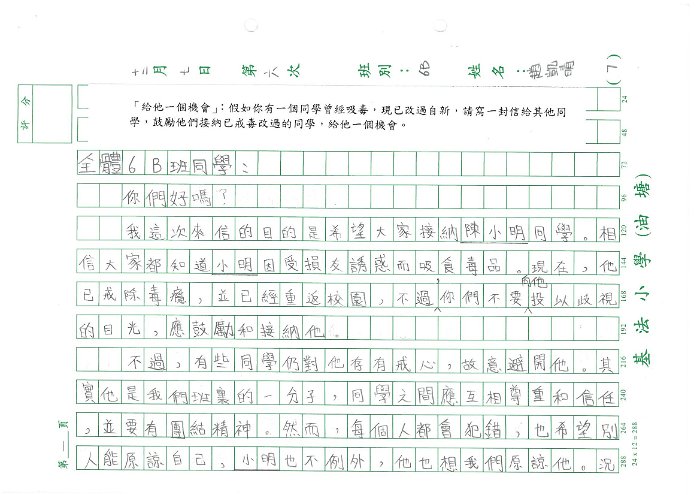 十二月七日 第六次 班別：6B 姓名： (7)
評分
「給他一個機會」：假如你有一個同學曾經吸毒，現已改過自新，請寫一封信給其他同
學，鼓勵他們接納已戒毒改過的同學，給他一個機會。
全體6B班同學：
你們好嗎？
我這次來信的目的是希望大家接納陳小明同學。相
信大家都知道小明因受損友誘惑而吸食毒品。現在，他
已戒除毒癮，並已經重返校園，不過，你們不要向他投以歧視
的目光，應鼓勵和接納他。
不過，有些同學仍對他存有戒心，故意避開他。其
實他是我們班裏的一分子，同學之間應互相尊重和信任
，並要有團結精神。然而，每個人都會犯錯，也希望別
人能原諒自己，小明也不例外，他也想我們原諒他。況
第一頁
24
48
72
96
120
144
168
192
216
240
264
288
24 x 12 = 288
基法小學(油塘)